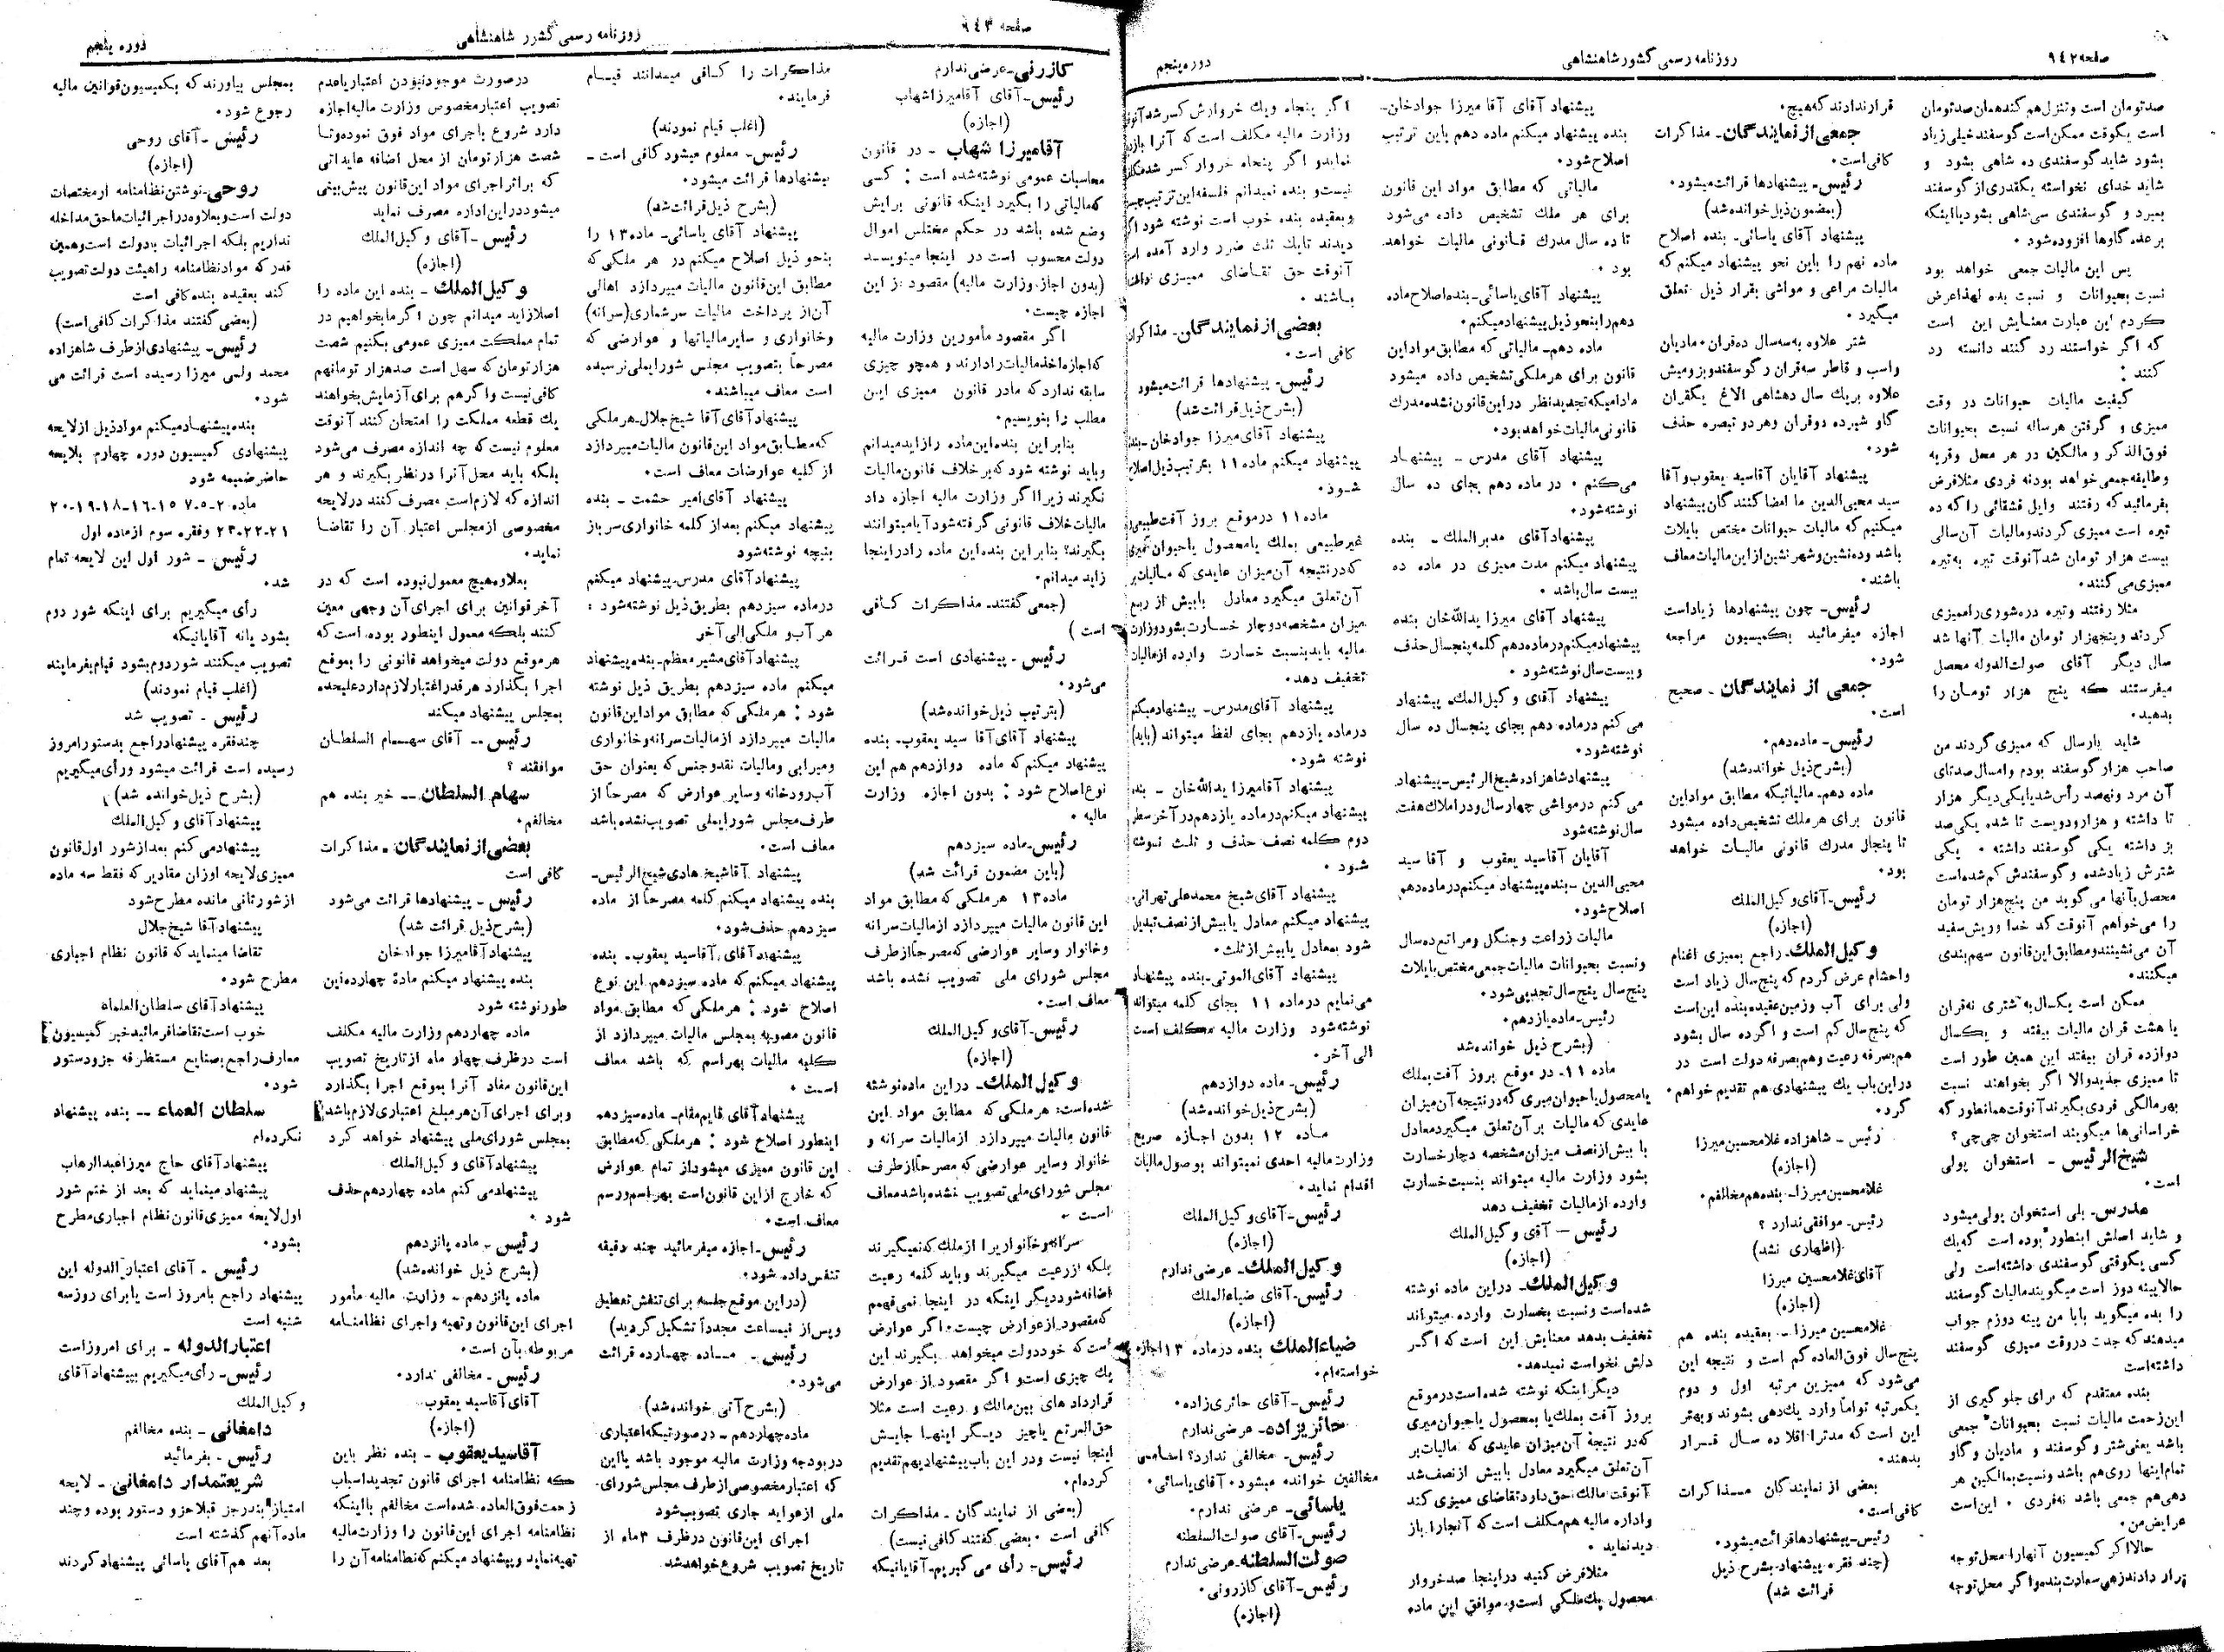 صفحه ۹٤۲
روزنامه رسمی کشور شاهنشاهی
دوره پنجم
صد تومان است و تنزل هم کند همان صد تومان
است یکوقت ممکن است گوسفند خیلی زیاد
بشود شاید گوسفندی ده شاهی بشود و
شاید خدای نخواسته یکقدری از گوسفند
بمیرد و گوسفندی سی شاهی بشود یا اینکه
بر عده گاوها افزوده شود ۰
پس این مالیات جمعی خواهد بود
نسبت بحیوانات و نسبت بده لهذا عرض
کردم این عبارت معنایش این است
که اگر خواستند رد کنند دانسته رد
کنند :
کیفیت مالیات حیوانات در وقت
ممیزی و گرفتن هر ساله نسبت بحیوانات
فوق الذکر و مالکین در هر محل و قریه
و طایفه جمعی خواهد بود نه فردی مثلا فرض
بفرمائید که رفتند وایل قشقائی را که ده
تیره است ممیزی کردند و مالیات آن سالی
بیست هزار تومان شد آنوقت تیره به تیره
ممیزی می کنند۰
مثلا رفتند و تیره دره شوری را ممیزی
کردند و پنجهزار تومان مالیات آنها شد
سال دیگر آقای صولت الدوله محصل
میفرستند که پنج هزار تومان را
بدهید۰
شاید پارسال که ممیزی کردند من
صاحب هزار گوسفند بودم و امسال صد تای
آن مرد و نهصد رأس شد یا یکی دیگر هزار
تا داشته و هزار و دویست تا شده یکی صد
بز داشته یکی گوسفند داشته ۰ یکی
شترش زیاد شده و گوسفندش کم شده است
محصل بآنها می گوید من پنج هزار تومان
را می خواهم آنوقت کد خدا و ریش سفید
آن می نشینند و مطابق این قانون سهم بندی
میکنند۰
ممکن است یکسال به شتری نه قران
یا هشت قران مالیات بیفتد و یکسال
دوازده قران بیفتد این همین طور است
تا ممیزی جدید و الا اگر بخواهند نسبت
بهر مالکی فردی بگیرند آنوقت همانطور که
خراسانی ها میگویند استخوان چی چی ؟
شیخ الرئیس ـ استخوان پولی
است ۰
مدرس ـ بلی استخوان پولی میشود
و شاید اصلش اینطور بوده است که یك
کسی یکوقتی گوسفندی داشته است ولی
حالا پینه دوز است میگویند مالیات گوسفند
را بده میگوید بابا من پینه دوزم جواب
میدهند که جدت در وقت ممیزی گوسفند
داشته است
بنده معتقدم که برای جلو گیری از
این زحمت مالیات نسبت بحیوانات جمعی
باشد یعنی شتر و گوسفند و مادیان و گاو
تمام اینها روی هم باشد و نسبت بمالکین هر
دهی هم جمعی باشد نه فردی ۰ این است
عرایض من ۰
حالا اگر کمیسیون آنها را محل توجه
قرار دادند زهی سعادت بنده و اگر محل توجه
قرار ندادند که هیچ۰
جمعی از نمایندگان ـ مذاکرات
کافی است ۰
رئیس ـ پیشنهادها قرائت میشود۰
(بمضمون ذیل خوانده شد)
پیشنهاد آقای یاسائی ـ بنده اصلاح
ماده نهم را باین نحو پیشنهاد میکنم که
مالیات مراعی و مواشی بقرار ذیل تعلق
میگیرد ۰
شتر علاوه به سه سال ده قران ۰ مادیان
و اسب و قاطر سه قران و گوسفند و بز و میش
علاوه بر یك سال دهشاهی الاغ یکقران
گاو شیرده دو قران و هر دو تبصره حذف
شود۰
پیشنهاد آقایان آقا سید یعقوب و آقا
سید محیی الدین ما امضا کنندگان پیشنهاد
میکنیم که مالیات حیوانات مختص بایلات
باشد و ده نشین و شهر نشین از این مالیات معاف
باشند ۰
رئیس ـ چون پیشنهادها زیاد است
اجازه میفرمائید بکمیسیون مراجعه
شود۰
جمعی از نمایندگان ـ صحیح
است ۰
رئیس ـ ماده دهم۰
(بشرح ذیل خوانده شد)
ماده دهم ـ مالیاتیکه مطابق مواد این
قانون برای هر ملك تشخیص داده میشود
تا پنجال مدرك قانونی مالیات خواهد
بود ۰
رئیس ـ آقای وکیل الملك
(اجازه)
وکیل الملك ـ راجع بممیزی اغنام
و احشام عرض کردم که پنج سال زیاد است
ولی برای آب و زمین عقیده بنده این است
که پنج سال کم است و اگر ده سال بشود
هم بصرفه رعیت و هم بصرفه دولت است در
در این باب یك پیشنهادی هم تقدیم خواهم
کرد۰
رئیس ـ شاهزاده غلامحسین میرزا
(اجازه)
غلامحسین میرزا ـ بنده هم مخالفم۰
رئیس ـ موافقی ندارد ؟
(اظهاری نشد)
آقای غلامحسین میرزا
(اجازه)
غلامحسین میرزا ـ بعقیده بنده هم
پنج سال فوق العاده کم است و نتیجه این
می شود که ممیزین مرتبه اول و دوم
یکمرتبه تواماً وارد یك دهی بشوند و بهتر
این است که مدت را اقلا ده سال قرار
بدهند۰
بعضی از نمایندگان مذاکرات
کافی است ۰
رئیس ـ پیشنهادها قرائت میشود۰
(چند فقره پیشنهاد بشرح ذیل
قرائت شد)
پیشنهاد آقای آقا میرزا جواد خان ـ
بنده پیشنهاد میکنم ماده دهم باین ترتیب
اصلاح شود۰
مالیاتی که مطابق مواد این قانون
برای هر ملك تشخیص داده می شود
تا ده سال مدرك قانونی مالیات خواهد
بود ۰
پیشنهاد آقای یاسائی ـ بنده اصلاح ماده
دهم را بنحو ذیل پیشنهاد میکنم۰
ماده دهم ـ مالیاتی که مطابق مواد این
قانون برای هر ملکی تشخیص داده میشود
مادامیکه تجدید نظر در این قانون نشده مدرك
قانونی مالیات خواهد بود۰
پیشنهاد آقای مدرس ـ پیشنهاد
می کنم ۰ در ماده دهم بجای ده سال
نوشته شود۰
پیشنهاد آقای مدبر الملك ـ بنده
پیشنهاد میکنم مدت ممیزی در ماده ده
بیست سال باشد ۰
پیشنهاد آقای میرزا ید الله خان بنده
پیشنهاد میکنم در ماده دهم کلمه پنجسال حذف
و بیست سال نوشته شود ۰
پیشنهاد آقای وکیل الملك پیشنهاد
می کنم در ماده دهم بجای پنجسال ده سال
نوشته شود۰
پیشنهاد شاهزاده شیخ الرئیس ـ پیشنهاد
می کنم در مواشی چهار سال و در املاك هفت
سال نوشته شود
آقایان آقا سید یعقوب و آقا سید
محیی الدین ـ بنده پیشنهاد میکنم در ماده دهم
اصلاح شود۰
مالیات زراعت و جنگل و مراتع ده سال
و نسبت بحیوانات مالیات جمعی مختص بایلات
پنج سال پنج سال تجدید می شود۰
رئیس ـ ماده یازدهم۰
(بشرح ذیل خوانده شد
ماده ۱۱ ـ در موقع بروز آفت بملك
یا محصول یا حیوان میری که در نتیجه آن میزان
عایدی که مالیات بر آن تعلق میگیرد معادل
با بیش از نصف میزان مشخصه دچار خسارت
بشود وزارت مالیه میتواند بنسبت خسارت
وارده از مالیات تخفیف دهد
رئیس — آقای وکیل الملك
(اجازه)
وکیل الملك ـ در این ماده نوشته
شده است و نسبت بخسارت وارده میتواند
تخفیف بدهد معنایش این است که اگر
دلش نخواست نمیدهد۰
دیگر اینکه نوشته شده است در موقع
بروز آفت بملك یا بمحصول یا حیوان میری
که در نتیجه آن میزان عایدی که مالیات بر
آن تعلق میگیرد معادل یا بیش از نصف شد
آنوقت مالك حق دارد تقاضای ممیزی کند
و اداره مالیه هم مکلف است که آنجا را باز
دید نماید ۰
مثلا فرض کنید در اینجا صد خروار
محصول یك ملکی است و موافق این ماده
اگر پنجاه و یك خروارش کسر شد آنوقت
وزارت مالیه مکلف است که آنرا بازدید
نماید و اگر پنجاه خروار کسر شد مکلف
نیست و بنده نمیدانم فلسفه این ترتیب چیست
و بعقیده بنده خوب است نوشته شود اگر
دیدند تا یك ثلث ضرر وارد آمده است
آنوقت حق تقاضای ممیزی داشته
باشند ۰
بعضی از نمایندگان ـ مذاکرات
کافی است ۰
رئیس ـ پیشنهادها قرائت میشود
(بشرح ذیل قرائت شد)
پیشنهاد آقای میرزا جواد خان ـ بنده
پیشنهاد میکنم ماده ۱۱ بترتیب ذیل اصلاح
شود۰
ماده ۱۱ در موقع بروز آفت طبیعی و
غیر طبیعی بملك یا محصول یا حیوان میری
که در نتیجه آن میزان عایدی که مالیات بر
آن تعلق میگیرد معادل یا بیش از ربع
میزان مشخصه دوچار خسارت بشود وزارت
مالیه باید بنسبت خسارت وارده از مالیات
تخفیف دهد۰
پیشنهاد آقای مدرس ـ پیشنهاد میکنم
در ماده یازدهم بجای لفظ میتواند (باید)
نوشته شود۰
پیشنهاد آقا میرزا ید الله خان ـ بنده
پیشنهاد میکنم در ماده یازدهم در آخر سطر
دوم کلمه نصف حذف و ثلث نوشته
شود ۰
پیشنهاد آقای شیخ محمد علی تهرانی ـ
پیشنهاد میکنم معادل یا بیش از نصف تبدیل
شود بمعادل یا بیش از ثلث۰
پیشنهاد آقای الموتی ـ بنده پیشنهاد
می نمایم در ماده ۱۱ بجای کلمه میتواند
نوشته شود وزارت مالیه مکلف است
الی آخر ۰
رئیس ـ ماده دوازدهم
(بشرح ذیل خوانده شد)
ماده ۱۲ بدون اجازه صریح
وزارت مالیه احدی نمیتواند بوصول مالیات
اقدام نماید۰
رئیس ـ آقای وکیل الملك
(اجازه)
وکیل الملك ـ عرضی ندارم
رئیس ـ آقای ضیاء الملك
(اجازه)
ضیاء الملك بنده در ماده ۱۳ اجازه
خواسته ام۰
رئیس ـ آقای حائری زاده۰
حائریزاده ـ عرضی ندارم
رئیس ـ مخالفی ندارد؟ اسامی
مخالفین خوانده میشود ۰ آقای یاسائی۰
یاسائی ـ عرضی ندارم۰
رئیس ـ آقای صولت السلطنه
صولت السلطنه ـ عرضی ندارم
رئیس ـ آقای کازرونی۰
(اجازه)
صفحه ۹٤۳
روزنامه رسمی کشور شاهنشاهی
دوره پنجم
کازرنی ـ عرضی ندارم
رئیس ـ آقای آقا میرزا شهاب
(اجازه)
آقا میرزا شهاب ـ در قانون
محاسبات عمومی نوشته شده است : کسی
که مالیاتی را بگیرد اینکه قانونی برایش
وضع شده باشد در حکم مختلس اموال
دولت محسوب است در اینجا مینویسد
(بدون اجازه وزارت مالیه) مقصود از این
اجازه چیست۰
اگر مقصود مأمورین وزارت مالیه
که اجازه اخذ مالیات را دارند و همچو چیزی
سابقه ندارد که ما در قانون ممیزی این
مطلب را بنویسیم۰
بنابر این بنده این ماده را زاید میدانم
و باید نوشته شود که بر خلاف قانون مالیات
نگیرند زیرا اگر وزارت مالیه اجازه داد
مالیات خلاف قانونی گرفته شود آیا میتوانند
بگیرند؟ بنابر این بنده این ماده را در اینجا
زاید میدانم۰
(جمعی گفتند ـ مذاکرات کافی
است )
رئیس ـ پیشنهادی است قرائت
می شود۰
(بترتیب ذیل خوانده شد)
پیشنهاد آقای آقا سید یعقوب ـ بنده
پیشنهاد میکنم که ماده دوازدهم هم این
نوع اصلاح شود : بدون اجازه وزارت
مالیه ۰
رئیس ـ ماده سیزدهم
(باین مضمون قرائت شد)
ماده ۱۳ هر ملکی که مطابق مواد
این قانون مالیات میپردازد از مالیات سرانه
و خانوار و سایر عوارضی که مصرحاً از طرف
مجلس شورای ملی تصویب نشده باشد
معاف است ۰
رئیس ـ آقای وکیل الملك
(اجازه)
وکیل الملك ـ در این ماده نوشته
شده است: هر ملکی که مطابق مواد این
قانون مالیات میپردازد از مالیات سرانه و
خانوار و سایر عوارضی که مصرحاً از طرف
مجلس شورای ملی تصویب نشده باشد معاف
است ۰
سرانه و خانوار یرا از ملك که نمیگیرند
بلکه از رعیت میگیرند و باید کلمه رعیت
اضافه شود دیگر اینکه در اینجا نمی فهمم
که مقصود از عوارض چیست ۰ اگر عوارض
است که خود دولت میخواهد بگیرند این
یك چیزی است و اگر مقصود از عوارض
قرارداد های بین مالك و رعیت است مثلا
حق المرتع یا چیز دیگر اینها جایش
اینجا نیست و در این باب پیشنهادی هم تقدیم
کرده ام۰
(بعضی از نمایندگان ـ مذاکرات
کافی است ۰ بعضی گفتند کافی نیست)
رئیس ـ رأی می گیریم ـ آقایانیکه
مذاکرات را کافی میدانند قیام
فرمایند۰
(اغلب قیام نمودند)
رئیس ـ معلوم میشود کافی است ـ
پیشنهادها قرائت میشود۰
(بشرح ذیل قرائت شد)
پیشنهاد آقای یاسائی ـ ماده ۱۳ را
بنحو ذیل اصلاح میکنم در هر ملکی که
مطابق این قانون مالیات میپردازد اهالی
آن از پرداخت مالیات سرشماری (سرانه)
و خانواری و سایر مالیاتها و عوارضی که
مصرحاً بتصویب مجلس شورایملی نرسیده
است معاف میباشند ۰
پیشنهاد آقای آقا شیخ جلال ـ هر ملکی
که مطابق مواد این قانون مالیات میپردازد
از کلیه عوارضات معاف است۰
پیشنهاد آقای امیر حشمت ـ بنده
پیشنهاد میکنم بعد از کلمه خانواری سرباز
بنیچه نوشته شود
پیشنهاد آقای مدرس ـ پیشنهاد میکنم
در ماده سیزدهم بطریق ذیل نوشته شود :
هر آب و ملکی الی آخر
پیشنهاد آقای مشیر معظم ـ بنده پیشنهاد
میکنم ماده سیزدهم بطریق ذیل نوشته
شود : هر ملکی که مطابق مواد این قانون
مالیات میپردازد از مالیات سرانه و خانواری
و میرابی و مالیات نقد و جنس که بعنوان حق
آب رودخانه و سایر عوارض که مصرحاً از
طرف مجلس شورایملی تصویب نشده باشد
معاف است ۰
پیشنهاد آقا شیخ هادی شیخ الرئیس ـ
بنده پیشنهاد میکنم کلمه مصرحاً از ماده
سیزدهم حذف شود۰
پیشنهاد آقای آقا سید یعقوب ـ بنده
پیشنهاد میکنم که ماده سیزدهم این نوع
اصلاح شود : هر ملکی که مطابق مواد
قانون مصوبه بمجلس مالیات میپردازد از
کلیه مالیات بهر اسم که باشد معاف
است ۰
پیشنهاد آقای قایم مقام ـ ماده سیزدهم
اینطور اصلاح شود : هر ملکی که مطابق
این قانون ممیزی میشود از تمام عوارض
که خارج از این قانون است بهر اسم و رسم
معاف است ۰
رئیس ـ اجازه میفرمائید چند دقیقه
تنفس داده شود۰
(در این موقع جلسه برای تنفس تعطیل
و پس از نیمساعت مجدداً تشکیل گردید)
رئیس ـ ماده چهارده قرائت
می شود۰
(بشرح آتی خوانده شد)
ماده چهاردهم ـ در صورتیکه اعتباری
در بودجه وزارت مالیه موجود باشد یا این
که اعتبار مخصوصی از طرف مجلس شورای
ملی از هواید جاری تصویب شود
اجرای این قانون در ظرف ۳ ماه از
تاریخ تصویب شروع خواهد شد
در صورت موجود نبودن اعتبار یا عدم
تصویب اعتبار مخصوص وزارت مالیه اجازه
دارد شروع باجرای مواد فوق نموده و تا
شصت هزار تومان از محل اضافه عایداتی
که بر اثر اجرای مواد این قانون پیش بینی
میشود در این اداره مصرف نماید
رئیس ـ آقای وکیل الملك
(اجازه)
وکیل الملك ـ بنده این ماده را
اصلا زاید میدانم چون اگر ما بخواهیم در
تمام مملکت ممیزی عمومی بکنیم شصت
هزار تومان که سهل است صد هزار تومان هم
کافی نیست و اگر هم برای آزمایش بخواهند
یك قطعه مملکت را امتحان کنند آنوقت
معلوم نیست که چه اندازه مصرف می شود
بلکه باید محل آنرا در نظر بگیرند و هر
اندازه که لازم است مصرف کنند در لایحه
مخصوصی از مجلس اعتبار آن را تقاضا
نماید۰
بعلاوه هیچ معمول نبوده است که در
آخر قوانین برای اجرای آن وجهی معین
کنند بلکه معمول اینطور بوده است که
هر موقع دولت میخواهد قانونی را بموقع
اجرا بگذارد هر قدر اعتبار لازم دارد علیحده
بمجلس پیشنهاد میکند
رئیس ـ آقای سهام السلطان
موافقند ؟
سهام السلطان ـ خیر بنده هم
مخالفم۰
بعضی از نمایندگان ـ مذاکرات
کافی است
رئیس ـ پیشنهادها قرائت می شود
(بشرح ذیل قرائت شد)
پیشنهاد آقا میرزا جواد خان
بنده پیشنهاد میکنم مادهٔ چهارده این
طور نوشته شود
ماده چهاردهم وزارت مالیه مکلف
است در ظرف چهار ماه از تاریخ تصویب
این قانون مفاد آنرا بموقع اجرا بگذارد
و برای اجرای آن هر مبلغ اعتباری لازم باشد
بمجلس شورای ملی پیشنهاد خواهد کرد
پیشنهاد آقای وکیل الملك
پیشنهاد می کنم ماده چهاردهم حذف
شود ۰
رئیس ـ ماده پانزدهم
(بشرح ذیل خوانده شد)
ماده پانزدهم ـ وزارت مالیه مأمور
اجرای این قانون و تهیه و اجرای نظامنامه
مربوطه بآن است۰
رئیس ـ مخالفی ندارد۰
آقای آقا سید یعقوب
(اجازه)
آقا سید یعقوب ـ بنده نظر باین
که نظامنامه اجرای قانون تجدید اسباب
زحمت فوق العاده شده است مخالفم با اینکه
نظامنامه اجرای این قانون را وزارت مالیه
تهیه نماید و پیشنهاد میکنم که نظامنامه آن را
بمجلس بیاورند که بکمیسیون قوانین مالیه
رجوع شود۰
رئیس ـ آقای روحی
(اجازه)
روحی ـ نوشتن نظامنامه از مختصات
دولت است و بعلاوه در اجرائیات ما حق مداخله
نداریم بلکه اجرائیات با دولت است و همین
قدر که مواد نظامنامه را هیئت دولت تصویب
کند بعقیده بنده کافی است
(بعضی گفتند مذاکرات کافی است)
رئیس ـ پیشنهادی از طرف شاهزاده
محمد ولی میرزا رسیده است قرائت می
شود۰
بنده پیشنهاد میکنم مواد ذیل از لایحه
پیشنهادی کمیسیون دوره چهارم بلایحه
حاضر ضمیمه شود
ماده ۲-۵-۷ ۱۵-۱۶-۱۸-۱۹-۲۰
۲۱-۲۲-۲۳ و فقره سوم از ماده اول
رئیس ـ شور اول این لایحه تمام
شد ۰
رأی میگیریم برای اینکه شور دوم
بشود یا نه آقایانیکه
تصویب میکنند شور دوم بشود قیام بفرمایند
(اغلب قیام نمودند)
رئیس ـ تصویب شد
چند فقره پیشنهاد راجع بدستور امروز
رسیده است قرائت میشود و رأی میگیریم
(بشرح ذیل خوانده شد)
پیشنهاد آقای وکیل الملك
پیشنهاد می کنم بعد از شور اول قانون
ممیزی لایحه اوزان مقادیر که فقط سه ماده
از شور ثانی مانده مطرح شود
پیشنهاد آقا شیخ جلال
تقاضا مینماید که قانون نظام اجباری
مطرح شود۰
پیشنهاد آقای سلطان العلماء
خوب است تقاضا فرمائید خبر کمیسیون
معارف راجع بصنایع مستظرفه جزو دستور
شود۰
سلطان العماء ـ بنده پیشنهاد
نکرده ام
پیشنهاد آقای حاج میرزا عبد الرهاب
پیشنهاد مینماید که بعد از ختم شور
اول لایحه ممیزی قانون نظام اجباری مطرح
بشود۰
رئیس ـ آقای اعتبار الدوله این
پیشنهاد راجع بامروز است یا برای روز سه
شنبه است
اعتبار الدوله ـ برای امروز است
رئیس ـ رأی میگیریم بپیشنهاد آقای
وکیل الملك
دامغانی ـ بنده مخالفم
رئیس ـ بفرمائید
شریعتمدار دامغانی ـ لایحه
امتیاز بندر جز قبلا جزو دستور بوده و چند
ماده آنهم گذشته است
بعد هم آقای یاسائی پیشنهاد کردند